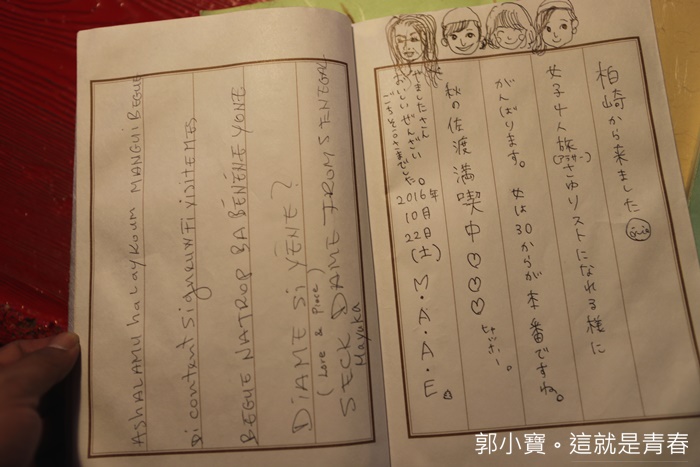 柏崎から来ました
女子4人旅(アラサー)さゆりストになれる様に
がんばります。女は30からが本番ですね。
秋の佐渡満喫中♡♡♡
やましたさん
おいしいぜんざい
ごちそうさまでした。
2016年
10月
22日
(土)
M.A.A.E.
ASHALAMU haLAYKOUM MANGUI BEGUE
Di content SiGNEUW Fi VISITEMES
BEGUE NATROP BA BÉNÉNE YONE
DiAME Si YÉNE?
(Love & Piece)
SECK DAME FROM SENEGAL
Mayuka
郭小寶。這就是青春